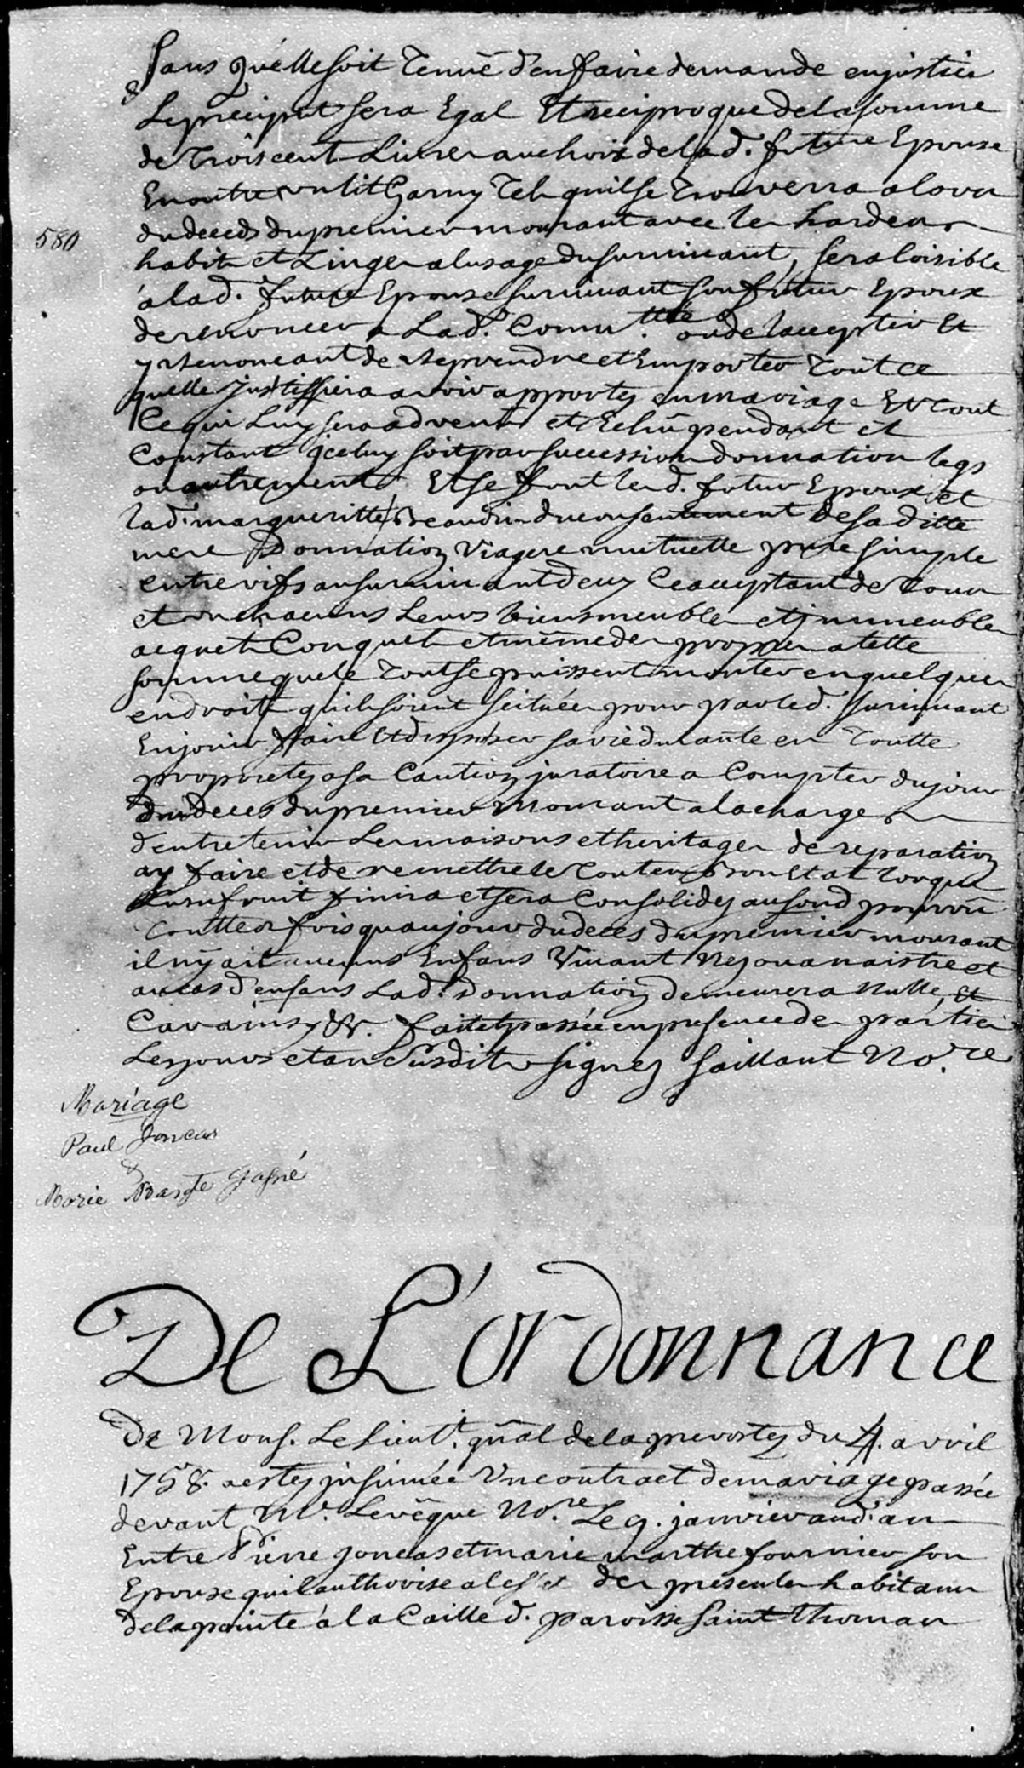 Sans quelle soit Tenuë d'en ffaire demande en justice
Le preciput sera Egal Et reciproque de la somme
de Trois cent Livres au choix de lad. future Epouse
En outre un lit Garny Tel quil se Trouverra alors
du deceds du premier mourant avec les hardes
580
habits et Linges a lusage du survivant, sera loisible
à lad. future Epouse survivant son futur Epoux
de renoncer a Lad. Commu.tté ou de laccepter Et
y renoncant de reprendre et Emporter Tout ce
quelle justiffiera avoir apportéz en mariage Et tout
Ce qui Luy sera advenu et Echû pendant et
Constant jceluy soit par succession donnation legs
ou autrement Et se font les d. futur Epoux et
lad. margueritte Beaudin du consantement de sa ditte
mere Donnation Viagere mutuelle pure simple
entre vifs au survivant deux Ce acceptant de Tous
et un chacuns Leurs biens meubles et jmmeubles
acquets Conquets et même des propres a telle
somme que le Tout se puissent monter en quelques
endroits quils soient scituées pour par led. survivant
En jouir ffaire Et disposer sa vie durante en Toutte
propriétéz a sa Caution juratoire a Compter du jour
du deces du premier mourant a la charge
d'entretenir Les maisons et heritages de reparation
ay faire et de remettre le Tout en bon Etat Lorque
Lusufruit finira et sera Consolidéz au fond pourvû
Touttes fois quau jour du deces du premier mourant
il ny ait aucuns Enfans Vivant Nez ou a naistre et
au cas d'enfans Lad. donnation demeurera Nulle, Et
Car ainsy &c. fait et passée en presence des parties
Les jours et an Susdits signez Saillant No.re
Mariage
Paul Joncas
&
Marie Bargte Gagné
De L'Ordonnance
De Mons. Le Lieut.t gñal de la prevostéz du 4. avril
1758. a estéz jnsinuée Un contract de mariage passée
devant M.r Levêque No.re Le 9. janvier aud. an
Entre Pierre joncas et marie marthe fournier son
Epouse quil authorise a leffet des presentes habitans
de la pointe à la Caille d. paroisse Saint Thomas